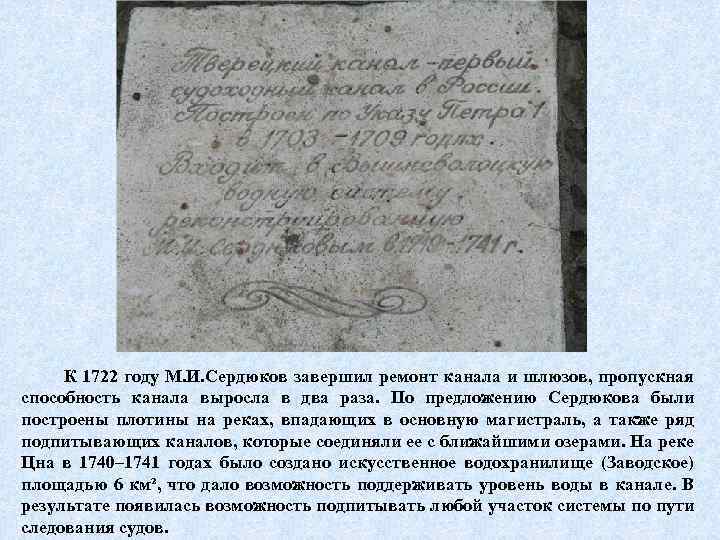 Тверецкий канал – первый
судоходный канал в России.
Построен по Указу Петра I
в 1703 – 1709 годах.
Входит в Вышневолоцкую
водную систему,
реконструированную
М.И. Сердюковым в 1719-1741 г.
К 1722 году М.И.Сердюков завершил ремонт канала и шлюзов, пропускная
способность канала выросла в два раза. По предложению Сердюкова были
построены плотины на реках, впадающих в основную магистраль, а также ряд
подпитывающих каналов, которые соединяли ее с ближайшими озерами. На реке
Цна в 1740–1741 годах было создано искусственное водохранилище (Заводское)
площадью 6 км², что дало возможность поддерживать уровень воды в канале. В
результате появилась возможность подпитывать любой участок системы по пути
следования судов.